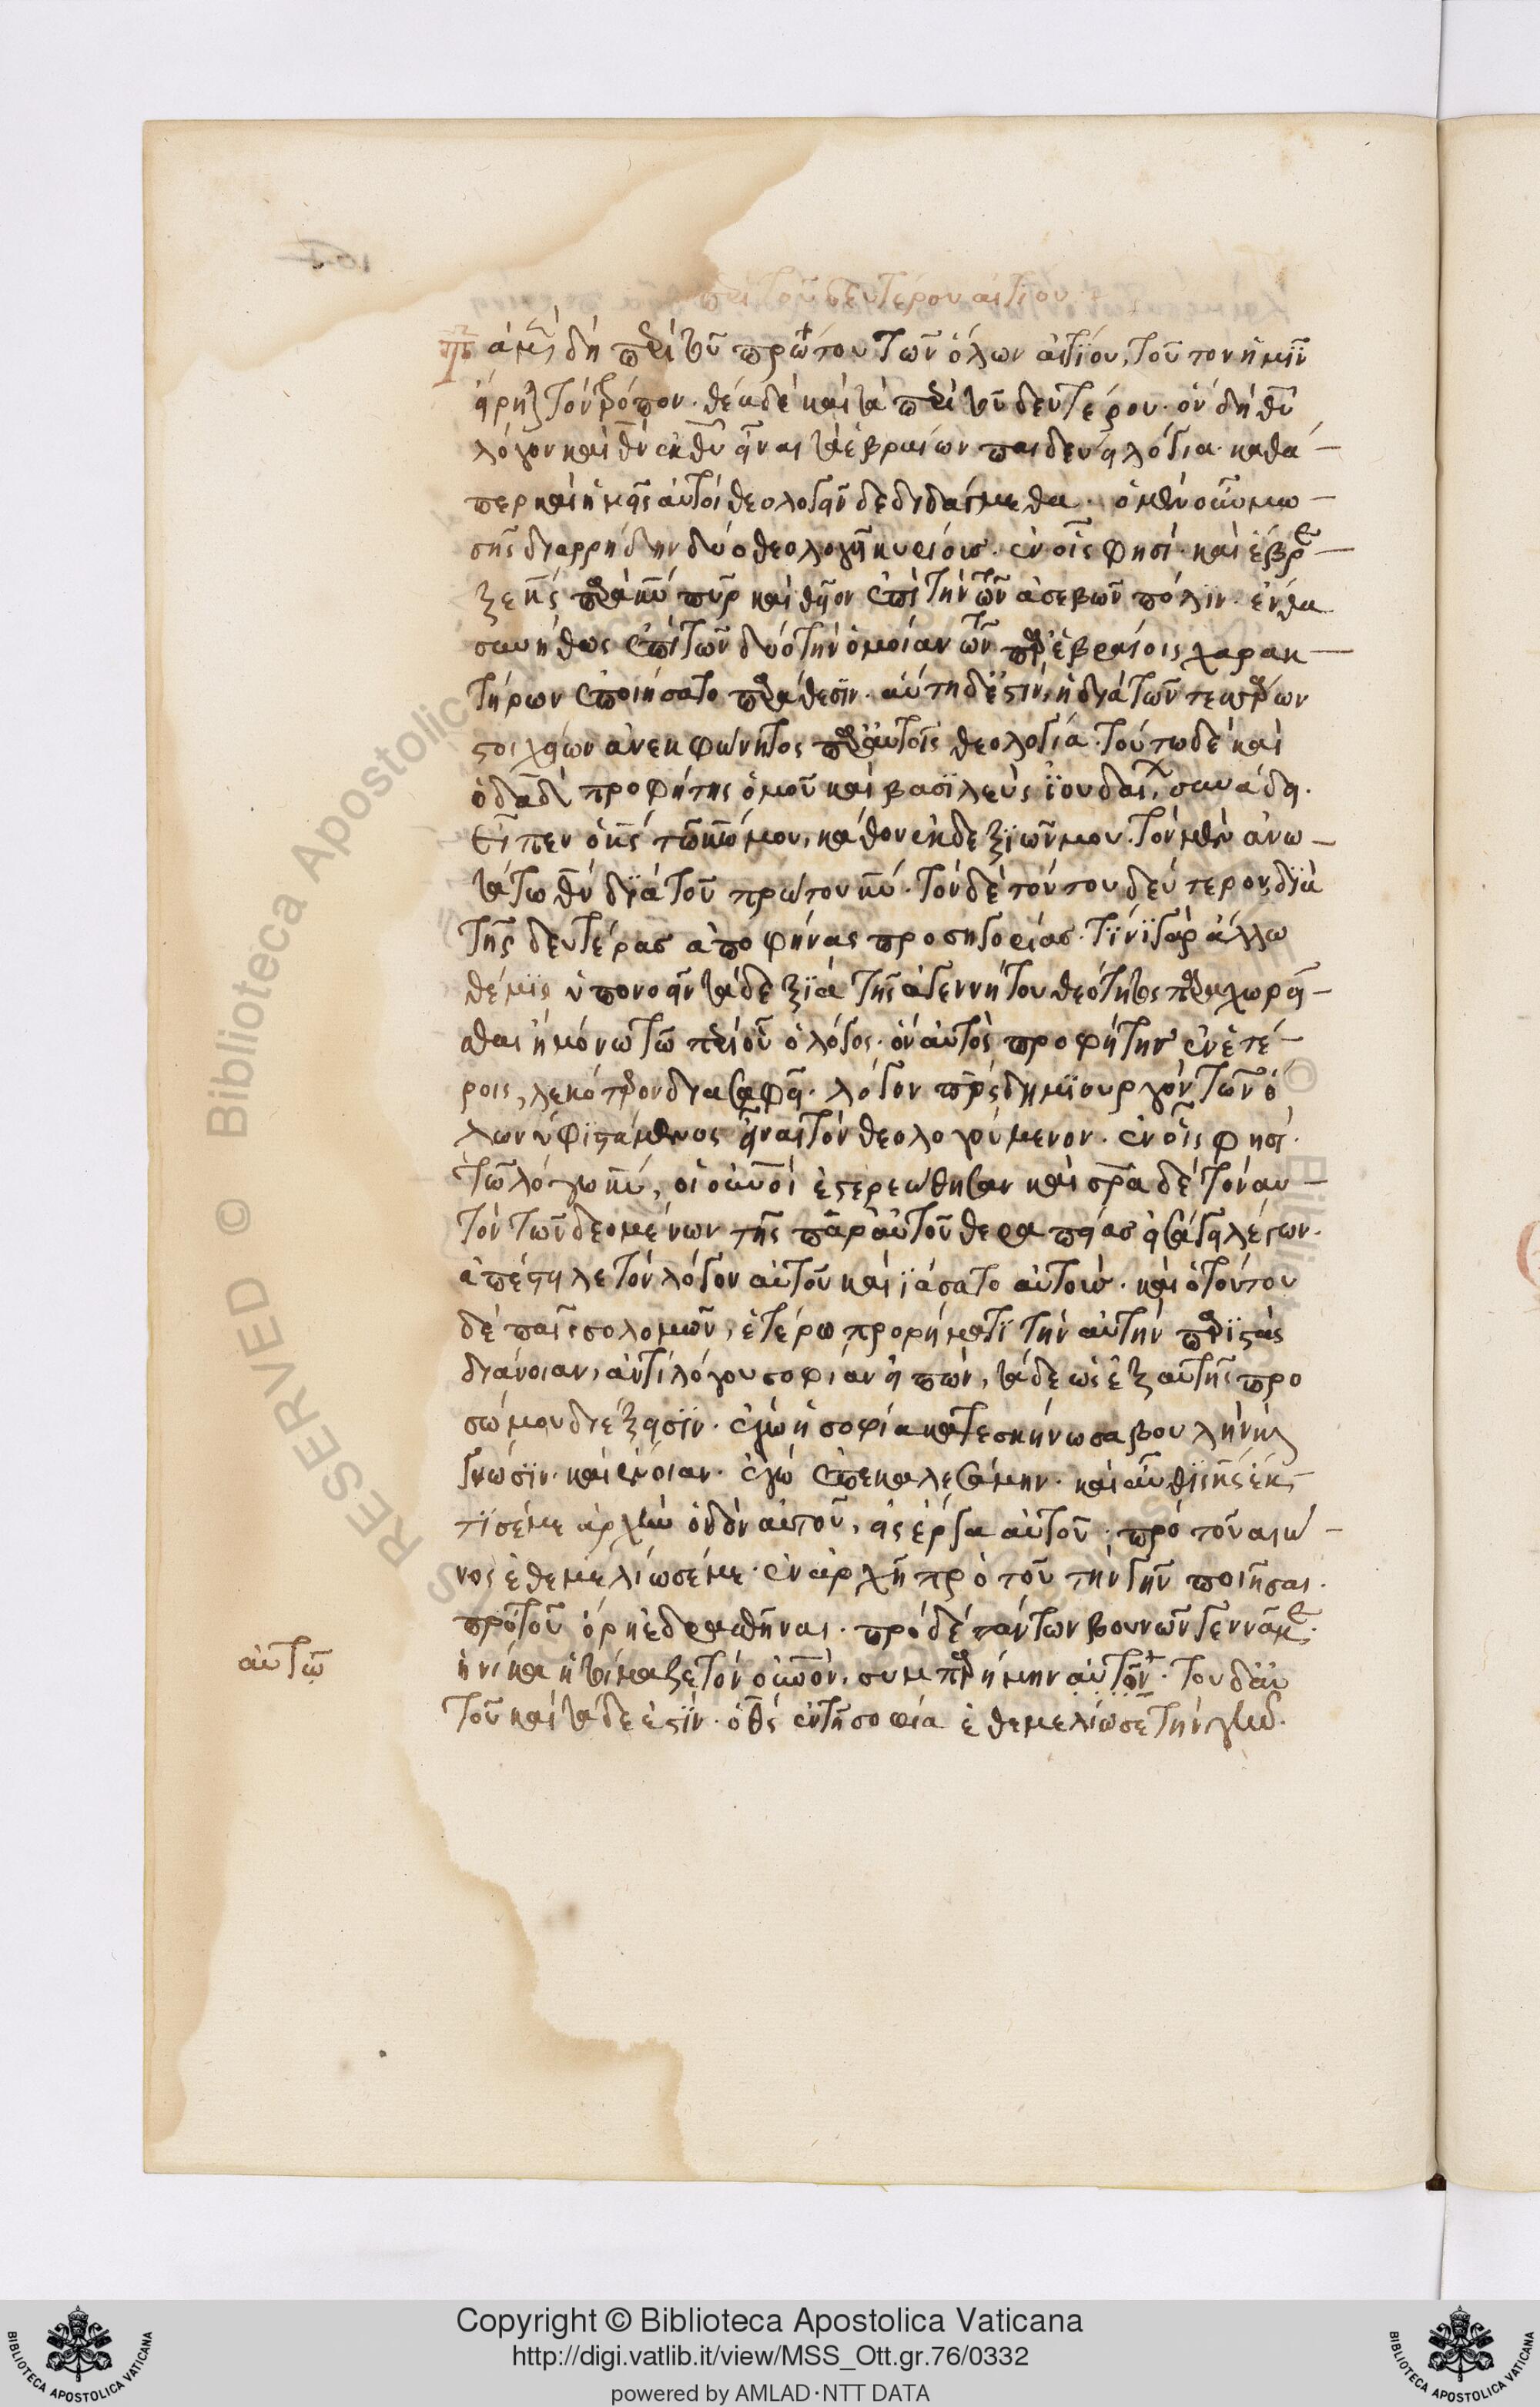 περὶ τοῦ δευτέρου αἰτίου
τὰ μὲν δὴ περὶ τοῦ πρώτου τῶν ὅλων αἰτίου, τοῦτον ἡμῖν
εἰρήσθω τὸν τρόπον. θέα δὲ καὶ τὰ περὶ τοῦ δευτέρου. ὃν δὴ θυ
λόγον καὶ θν ἐκ θυ εἶναι τὰ ἑβραίων παιδεύει λόγια. καθά-
περ καὶ ἡμεῖς αὐτοὶ θεολογεῖν δεδιδάγμεθα. ὁ μὲν οὖν μω-
σῆς διαρρήδην δύο θεολογεῖ κυρίους. ἐν οἷς φησὶ. καὶ ἔβρε-
ξε κς παρὰ κυ πῦρ καὶ θεῖον ἐπὶ τὴν τῶν ἀσεβῶν πόλιν. ἔνθα
συνήθως ἐπὶ τῶν δύο τὴν ὁμοίαν τῶν παρ' ἑβραίοις χαρακ-
τήρων ἐποιήσατο παράθεσιν. αὕτη δ' ἐστὶν, ἡ διὰ τῶν τεσσάρων
στοιχείων ἀνεκφώνητος παρ' αὐτοῖς θεολογία. τούτω δὲ καὶ
ὁ δαδ προφήτης ὁμοῦ καὶ βασιλεὺς ἰουδαίων, συνάδει.
εἶπεν ὁ κς τῶ κω μου, κάθου ἐκ δεξιῶν μου. τὸν μὲν ἀνω-
τάτω θν διὰ τοῦ πρώτου κυ. τὸν δὲ τούτου δεύτερον, διὰ
τῆς δευτέρας ἀποφήνας προσηγορίας. τίνι γὰρ ἄλλω
θέμις ὑπονοεῖν τὰ δεξιὰ τῆς ἀγεννήτου θεότητος παραχωρεῖ-
σθαι ἢ μόνω τῶ περὶ οὗ ὁ λόγος. ὃν αὐτὸς προφήτης ἐν ἑτέ-
ροις, λευκότερον διασαφεῖ. λόγον πρς δημιουργὸν τῶν ὅ
λων ὑφιστάμενος εἶναι τὸν θεολογούμενον. ἐν οἷς φησὶ.
τῶ λόγω κυ, οἱ οὐνοὶ ἐστερεώθησαν καὶ σρα δὲ τὸν αυ-
τὸν τῶν δεομένων τῆς παρ' αὐτοῦ θεραπείας εἰσάγει λέγων.
ἀπέστειλε τὸν λόγον αὐτοῦ καὶ ἰάσατο αὐτούς. καὶ ὁ τούτου
δὲ παῖς σολομῶν, ἑτέρω προρήματι τὴν αὐτὴν παριστὰς
διάνοιαν, ἀντὶ λόγου σοφίαν εἰπὼν, τάδε ὡς ἐξ αὐτῆς προ
σώπου διέξεισιν. ἐγὼ ἡ σοφία κατεσκήνωσα βουλὴν καὶ
γνῶσιν. καὶ ἔννοιαν. ἐγὼ ἐπεκαλεσάμην. καὶ αὖθις κς ἔκ-
τισέ με ἀρχὴν ὁδῶν αὐτοῦ, εἰς ἔργα αὐτοῦ. πρὸ τοῦ αἰῶ-
νος ἐθεμελίωσέ με. ἐν ἀρχῆ πρὸ τοῦ τὴν γῆν ποιῆσαι.
πρὸ τοῦ ὄρη ἑδρασθῆναι. πρὸ δὲ πάντων βουνῶν γεννᾶ με.
ἡνίκα ἡτοίμαζε τὸν οὐνον, συμπαρήμην αὐτὸν. τοῦ δ' αυ
τοῦ καὶ τάδε ἐστὶν. ὁ θς ἐν τῆ σοφία ἐθεμελίωσε τὴν γῆν.
αὐτῶ